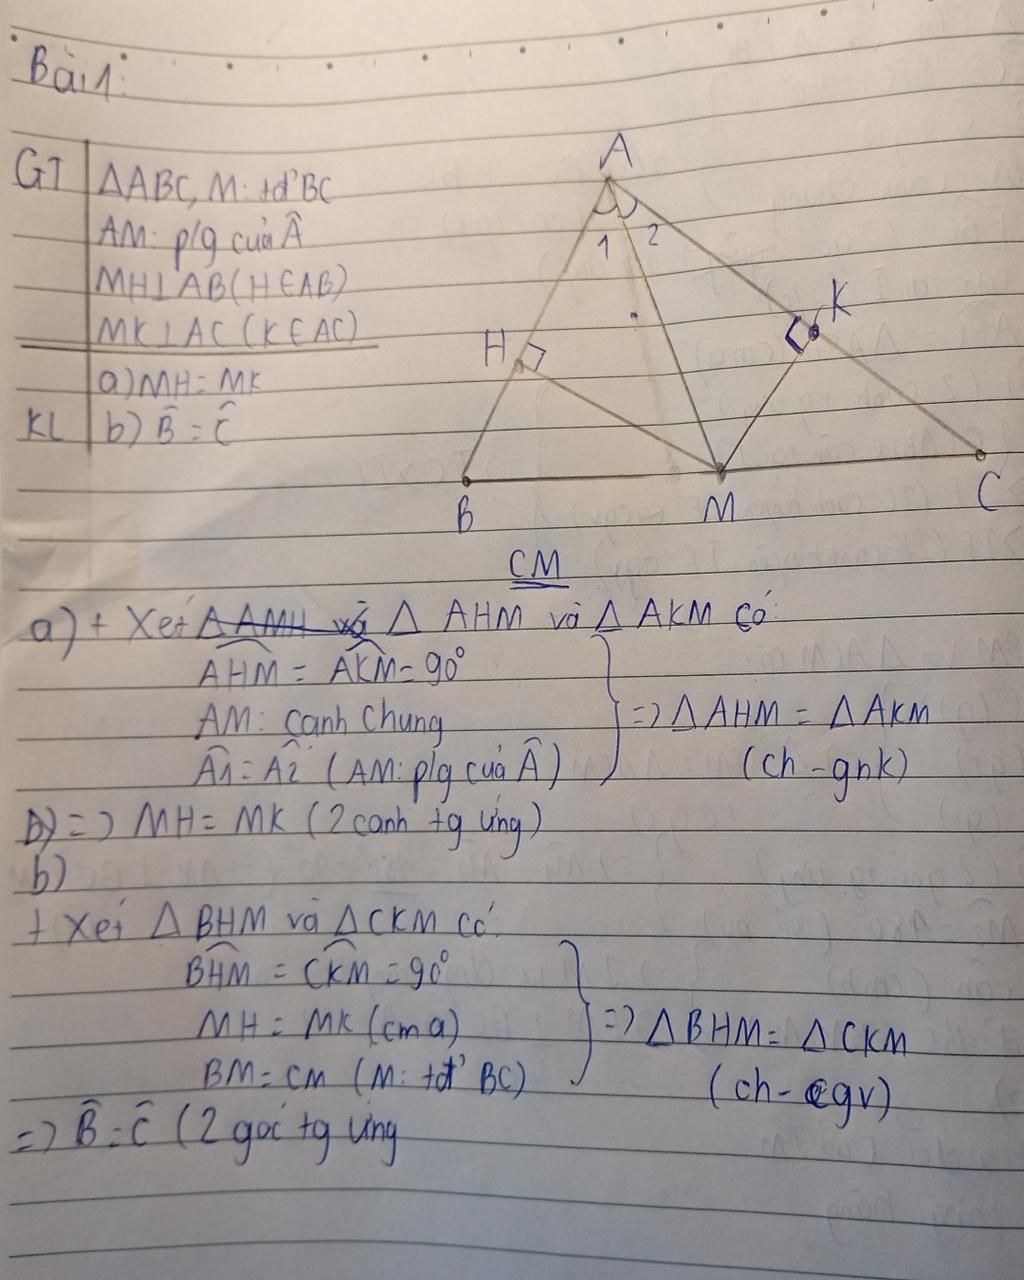 Bài 1:
GT
ΔABC, M: tđ' BC
AM: p/g của Â
MH⊥AB(H∈AB)
MK⊥AC (K∈AC)
a) MH = MK
KL
b) B̂ = Ĉ
A
1 2
H
K
B
M
C
CM
a) + Xét Δ AHM và Δ AKM có:
AHM = AKM = 90°
AM: cạnh chung
Â1 = Â2 (AM: p/g của Â)
=> Δ AHM = Δ AKM
(ch - gnk)
=> MH = MK (2 cạnh tg ứng)
b)
+ Xét Δ BHM và Δ CKM có:
BHM = CKM = 90°
MH = MK (cm a)
BM = CM (M: tđ' BC)
=> Δ BHM = Δ CKM
(ch - cgv)
=> B̂ = Ĉ (2 góc tg ứng